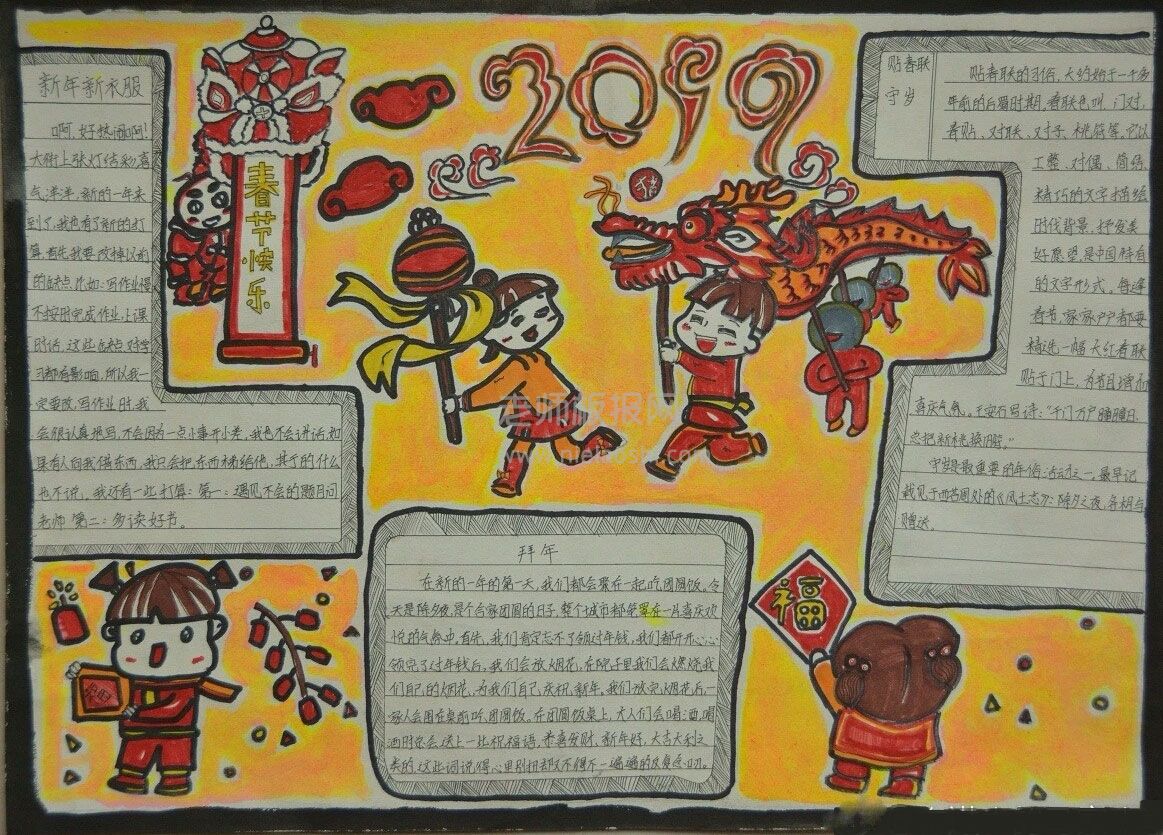 新年新衣服
啊,好热闹啊!
大街上张灯结彩,喜
气洋洋,新的一年来
到了,我也有了新的打
算,首先,我要改掉以前
的缺点,比如:写作业慢,
不按时完成作业,上课
时话,这些缺点对学
习都有影响,所以我一
定要改,写作业时,我
会很认真地写,不会因为一点小事开小差,我也不会讲话,如
果有人向我借东西,我只会把东西给他,其于的什么
也不说。我还有一些打算:第一:遇见不会的题目问
老师 第二:多读好书。
春节快乐
2019
猪
贴春联
守岁
贴春联的习俗,大约始于一千多
年前的后蜀时期,春联也叫,门对,
春贴,对联,对子,桃符等,它以
工整、对偶、简练、
精巧的文字描绘
时代背景,抒发美
好愿望,是中国特有
的文字形式,每逢
春节,家家户户都要
精选一幅大红春联
贴于门上,为节日增加
喜庆气氛。王安石写诗:“千门万户曈曈日,
总把新桃换旧符。”
守岁是最重要的年俗活动之一,最早记
载见于西晋周处的《风土志》:除夕之夜,各相与
赠送
老师板报网
拜年
在新的一年的第一天,我们都会聚在一起吃团圆饭。今
天是除夕夜,是个合家团圆的日子,整个城市都笼罩在一片喜庆欢
悦的气氛中,首先,我们肯定忘不了领过年钱,我们都开开心心
领完了过年钱后,我们会放烟花,在院子里我们会燃烧我
们自己的烟花,为我们自己庆祝新年。我们放完烟花后一
家人会围在桌前吃团圆饭。在团圆饭桌上,大人们会喝酒,喝
酒时总会送上一些祝福语,恭喜发财,新年好,大吉大利之
类的,这些词说得心里别扭却又不得不一遍遍的反复念叨。
福